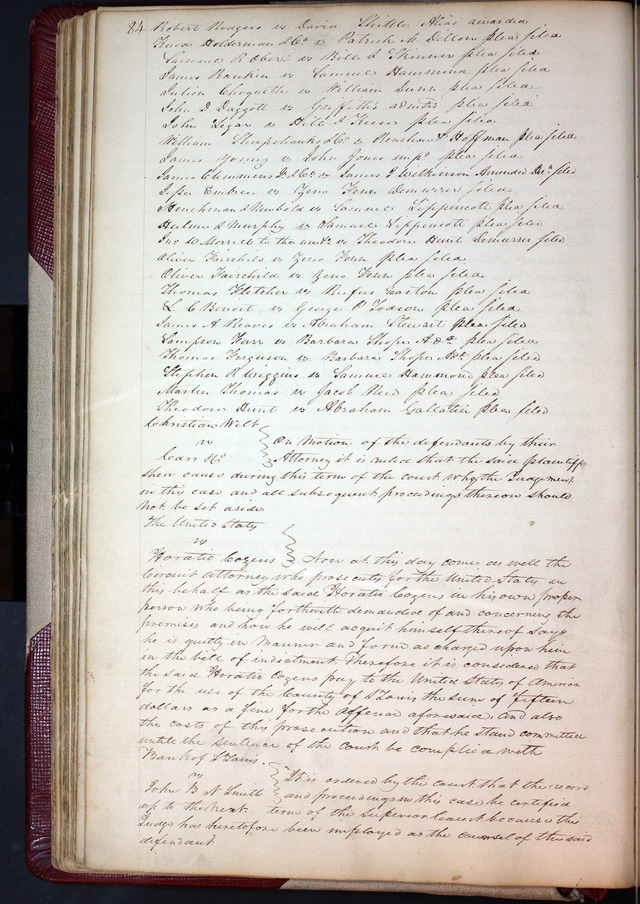 84 Robert Rodgers vs David Shittle Alias awarded
Enoch Holderman & Co vs Patrick M. Dillon plea filed
Samuel R Ober vs Bill & Skinner plea filed
James Rankin vs Samuel Hammond plea filed
Julien Choquette vs William Dunn plea filed
John D Daggett vs Griffiths admtrs plea filed
John Segar vs Hill & Keeser plea filed
William Sheepshanks & Co vs Renshaw & Hoffman plea filed
James Young vs John Jones impd plea filed
James Clemmens Jr & Co vs James P Wilkinson Amended Decn filed
vs Zeno Fenn Demurrer filed
Henchman & Newbold vs Samuel Lippincott plea filed
& Murphy vs Samuel Lippincott plea filed
Ino W Morrell to the use &c vs Theodore Hunt Demurrer filed
Oliver Fairchild vs Zeno Fenn plea filed
Oliver Fairchild vs Zeno Fenn plea filed
Thomas Fletcher vs Rufus Easton plea filed
L. C Benoit vs George P Todson plea filed
James A Reaves vs Abraham Stewart plea filed
Sampson Farr vs Barbara Shope Adx plea filed
Thomas Ferguson vs Barbara Shope Adx plea filed
Stephen R Wiggins vs Samuel Hammond plea filed
Martin Thomas vs Jacob Need plea filed
Theodore Hunt vs Abraham Gallatin plea filed
Christian Wilt
vs On motion of the defendants by their
Carr & Co Attorney it is ruled that the said plaintiff
shew cause during this term of the court why the Judgement
in this case and all subsequent proceedings thereon should
not be set aside
The United States
vs
Horatio Cozens Now at this day comes as well the
Circuit Attorney who prosecutes for the United States in
this behalf as the said Horatio Cozens in his own proper
person who being forthwith demanded of and concerning the
premises and how he will acquit himself thereof says
he is guilty in manner and form as charged upon him
in the bill of indictment Therefore it is considered that
the said Horatio Cozens pay to the United States of America
for the use of the County of St Louis the sum of fifteen
dollars as a fine for the offence aforesaid, and also
the costs of this prosecution and that he stand committed
until the sentence of the court be complied with
Bank of St Louis.
vs It is ordered by the court that the record
John B N Smith and proceedings in this case be certified
up to the next term of the superior court because the
Judge has heretofore been employed as the counsel of the said
defendant